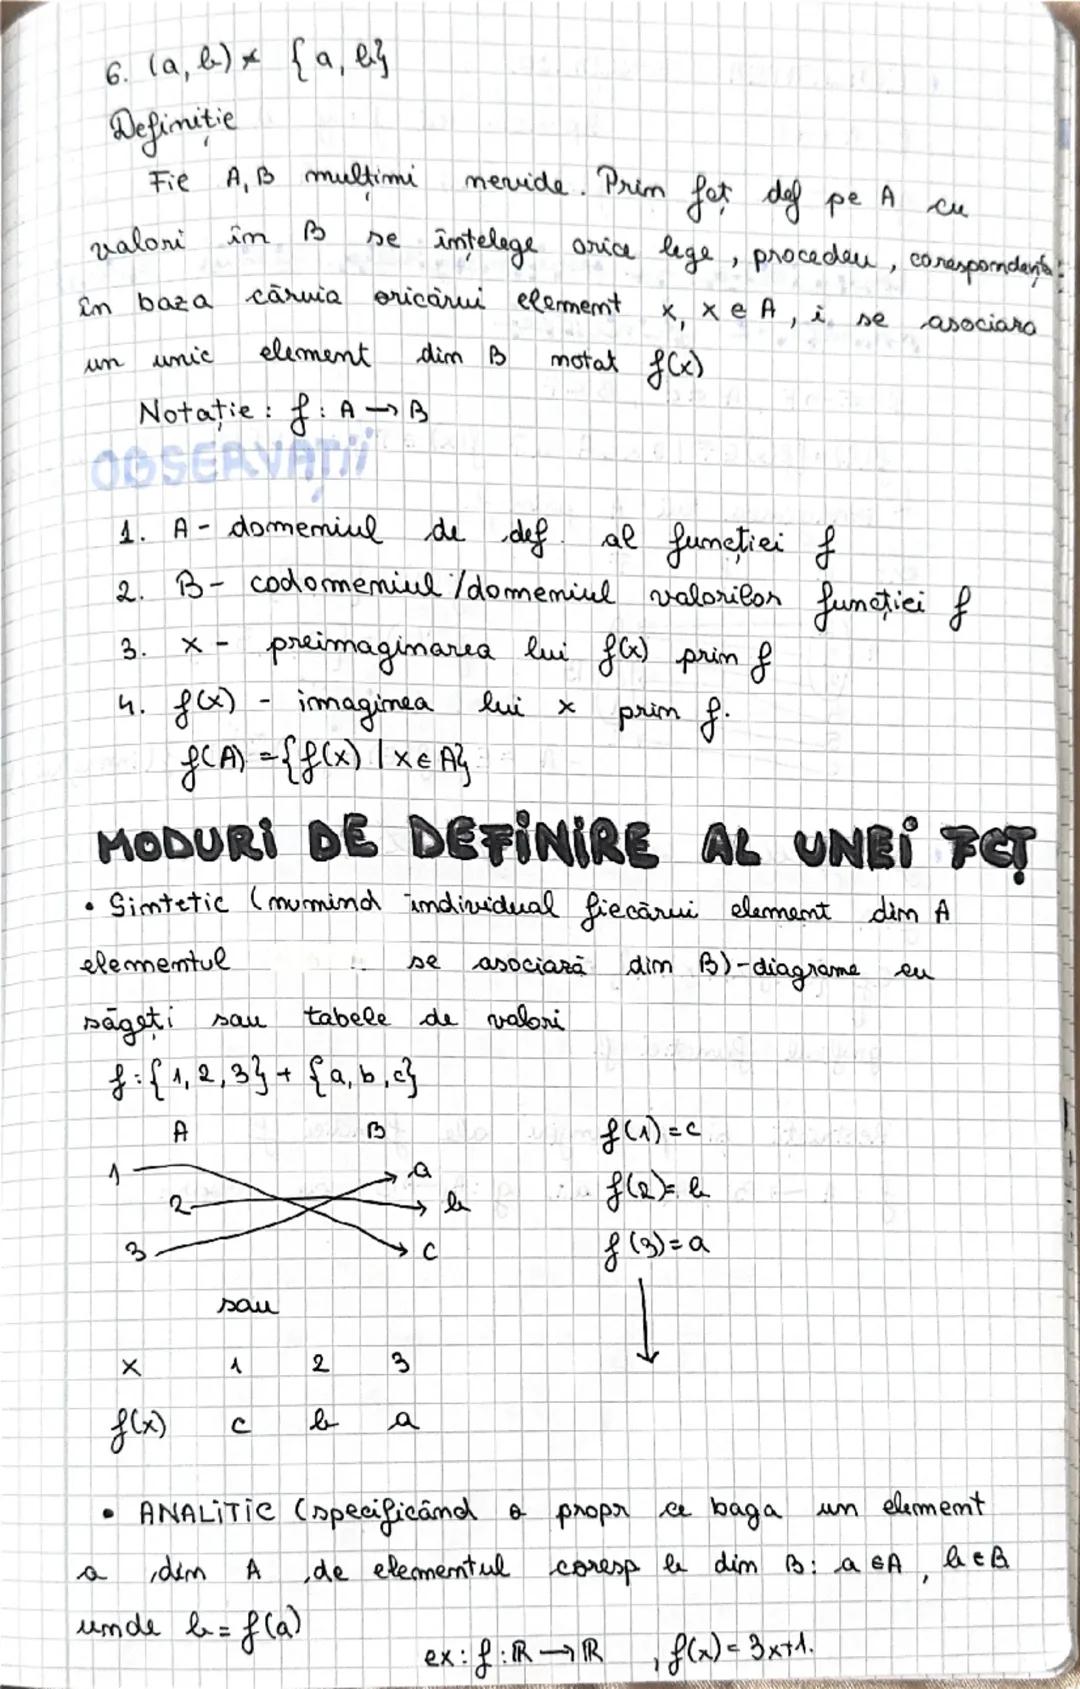 6. (a, b) ≠ {a, b}
Definiție
Fie A, B mulțimi nevide. Prin fcț def pe A cu
valori în B se înțelege orice lege, procedeu, corespondență
în baza căruia oricărui element x, x ∈ A, i se asociara
un unic element din B notat f(x)
Notație: f: A → B
OBSERVAȚII
1. A - domeniul de def. al funcției f
2. B - codomeniul /domeniul valorilor funcției f
3. x - preimaginarea lui f(x) prin f
4. f(x) - imaginea lui x prin f.
f(A) = {f(x) | x ∈ A}
MODURI DE DEFINIRE AL UNEI FCȚ
• Sintetic (numind individual fiecărui element din A
elementul se asociază din B) - diagrame cu
săgeți sau tabele de valori
f: {1, 2, 3} + {a, b, c}
A B f(1) = c
1 a
2 b f(2) = b
3 c f(3) = a
sau
x 1 2 3
f(x) c b a
• ANALITIC (specificând o propr ce baga un element
a din A de elementul coresp b din B: a ∈ A, b ∈ B
unde b = f(a)
ex: f: ℝ → ℝ, f(x) = 3x+1.